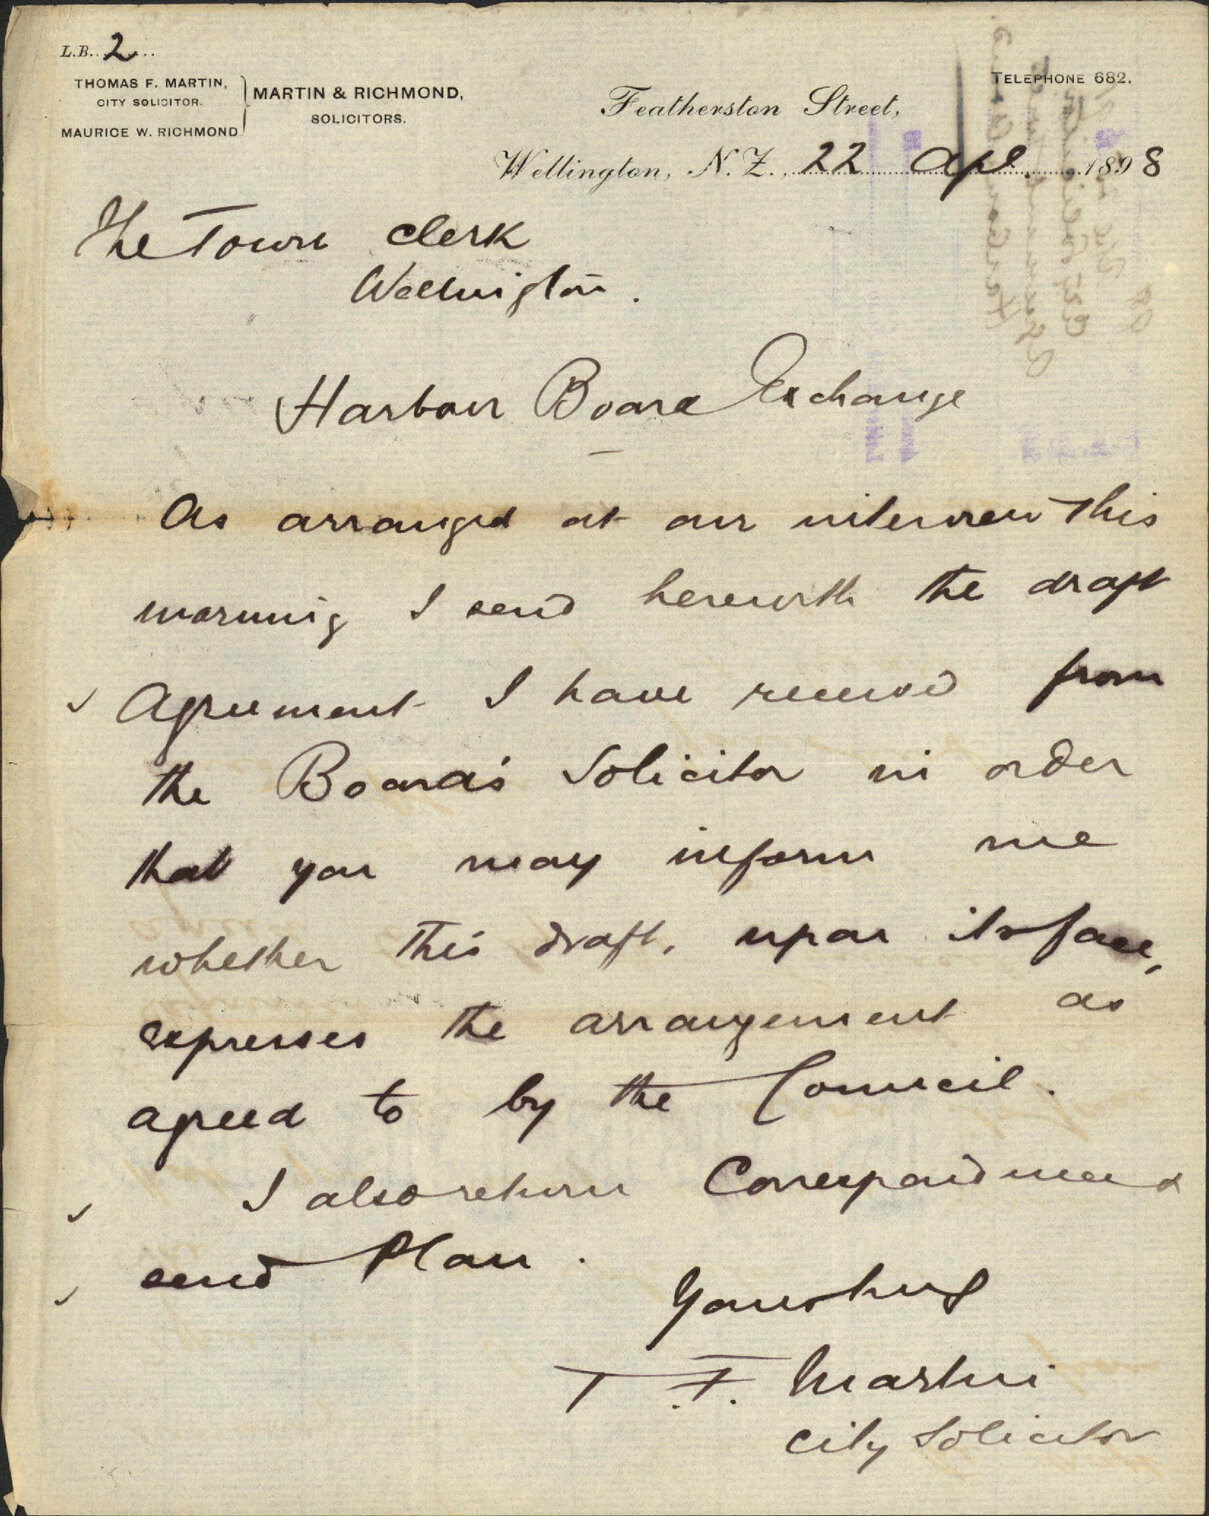 L.B. 2
THOMAS F. MARTIN,
CITY SOLICITOR.
MAURICE W. RICHMOND
MARTIN & RICHMOND,
SOLICITORS.
TELEPHONE 682.
Featherston Street,
Wellington, N.Z., 22 Apl. 1898
The Town Clerk
Wellington.
Harbour Board Exchange
As arranged at our interview this
morning I send herewith the draft
Agreement I have received from
the Board's Solicitor in order
that you may inform me
whether this draft, upon its face,
expresses the arrangement as
agreed to by the Council.
I also return Correspondence
and Plan.
Yours truly
T. F. Martin
City Solicitor